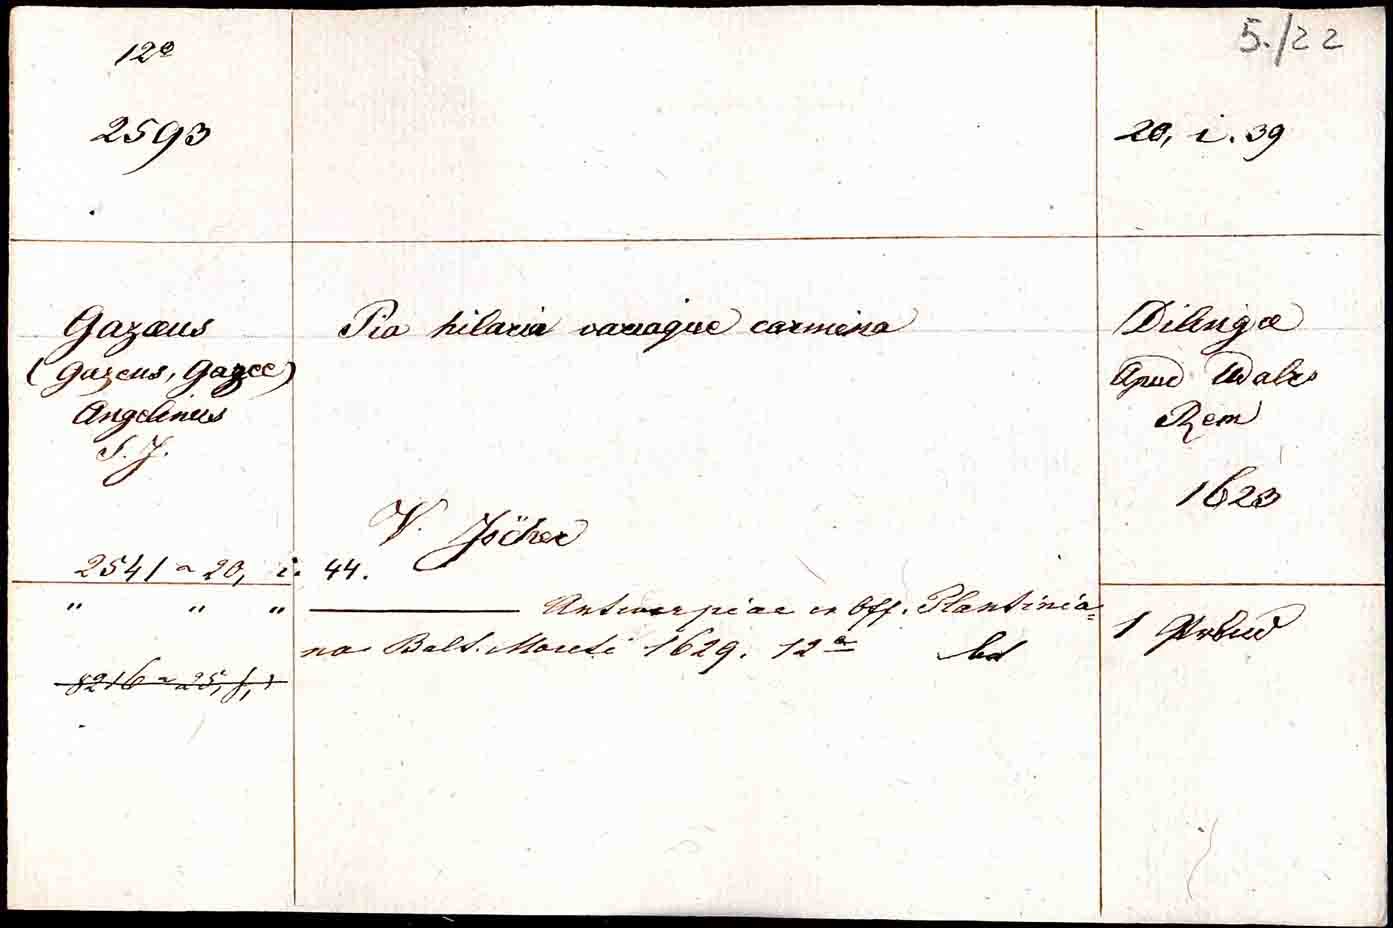 5./22
12º
2593
20, i. 39
Gazæus
(Gazeus, Gazee)
Angelinus
S. J.
Pia hilaria variaque carmina
Dilingæ
Apud Udalr
Rem
1623
V. Jöcher
2541 ~ 20, i. 44.
" " " ——— Antwerpiae ex Off. Plantinia=
na Balt. Moreti 1629. 12º bd
1 Prbnd